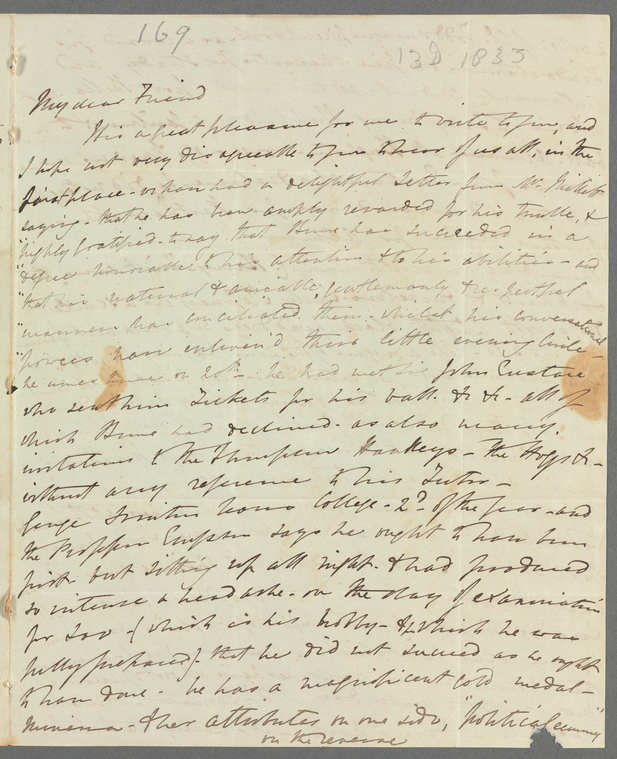 169
13D 1833
My dear Friend
It is a great pleasure for me to write to you, and
I hope not very disagreeable to you to hear of us all, in the
first place - we have had a delightful Letter from Mr.
saying - that he has been amply rewarded for his trouble, &
"highly gratified - to say that Hume has succeeded in a
"degree honorable to his attention & to his abilities - and
"that his natural & amicable, gentlemanly & respectful
"manners have conciliated them - whilst his conversational
"powers have enliven'd their little evening Circle -
he comes home on 20th - he had met Sir John Eustace
who sent him Tickets for his ball - &c &c - all of
which Hume had declined - as also many
invitations to the Thompson Hankeys - the Hoggs &c -
without any reference to his Tutor -
George leaves College - 2d. of the year - and
the Professor Empson says he ought to have been
first - but sitting up all night - & had produced
so intense a headache - on the day of examination
for Law - (which is his hobby - & which he was
fully prepared) - that he did not succeed as he ought
to have done - he has a magnificent gold medal -
Minerva - & her attributes on one side, "political economy"
on the reverse